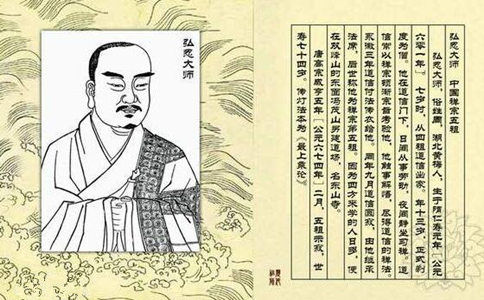 弘忍大师
弘忍大师 中国禅宗五祖
弘忍大师，俗姓周，湖北黄梅人，生于隋仁寿元年［公元
六零一年］。七岁时，从四祖道信出家。年十三岁，正式剃
度为僧。他在道信门下，日间从事劳动，夜间静坐习禅。道
信常以禅宗顿渐宗旨考验他，他触事解悟，尽得道信的禅法。
永徽三年道信付法传衣给他。同年九月道信圆寂，由他继承
法席，后世称他为禅宗第五祖。因为四方来学的人日多，便
在双峰山的东面冯茂山另建道场，名东山寺。
唐高宗咸亨五年［公元六七四年］二月，五祖示寂，世
寿七十四岁。传灯法本为《最上乘论》